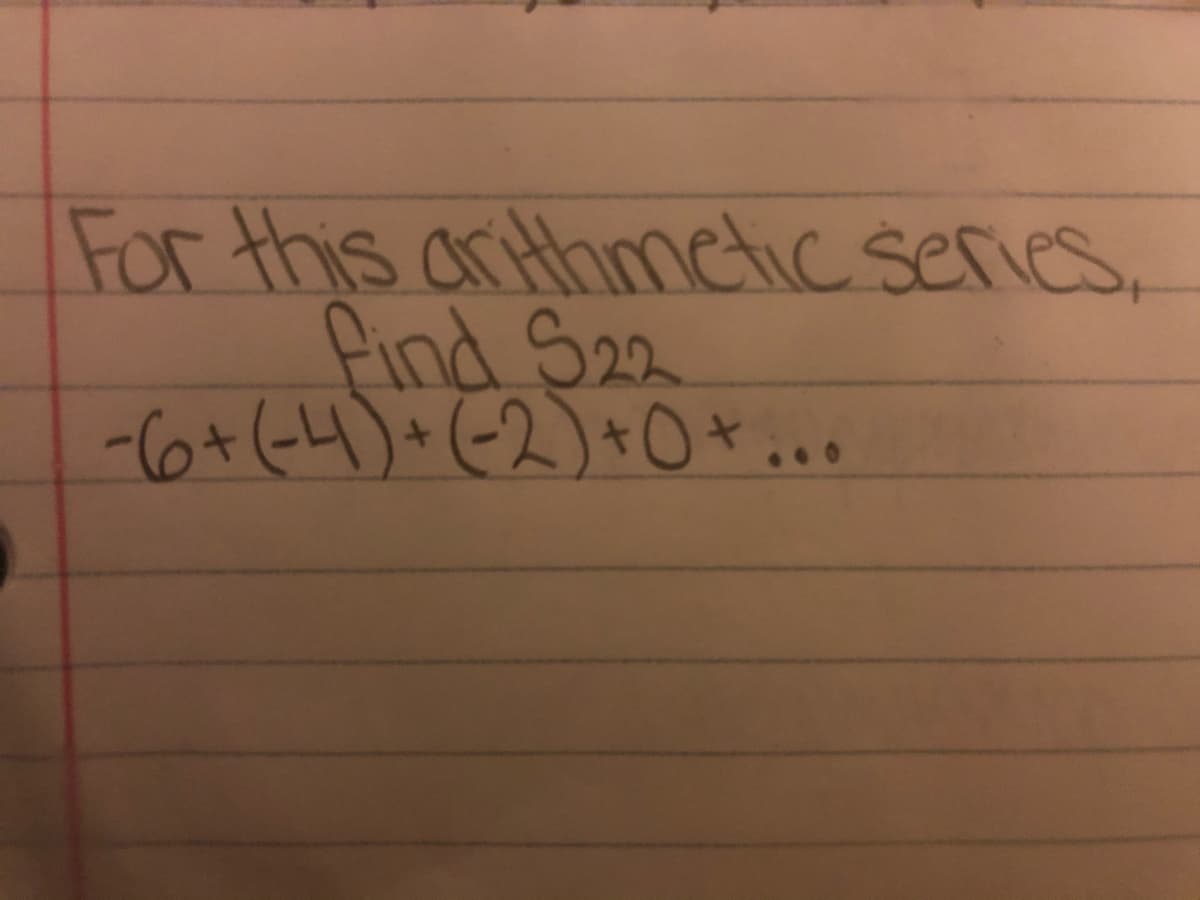 For this arithmetic series,
find S22
-6+(-4)+(-2)+0+...